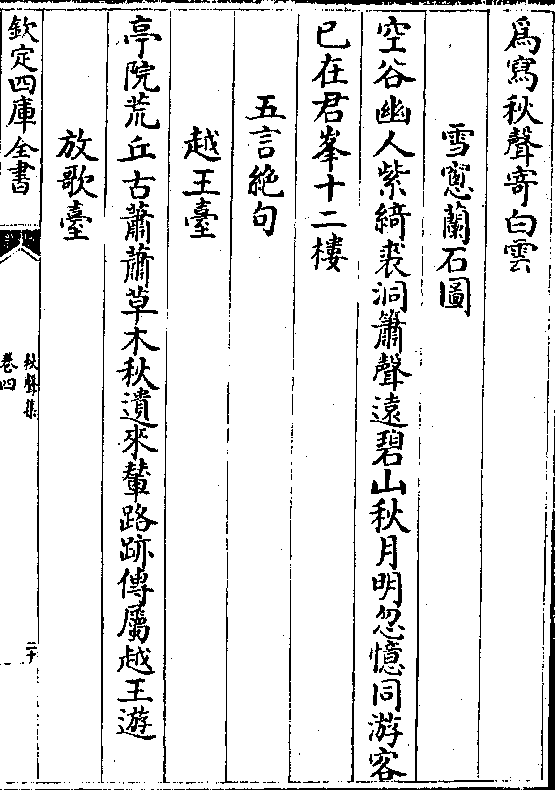 爲寫秋聲寄白雲
雪窻蘭石圖
空谷幽人紫綺裘洞簫聲遠碧山秋月明忽憶同游客
已在君峯十二樓
五言絶句
越王臺
亭院荒丘古蕭蕭草木秋遺來輦路跡傳屬越王遊
放歌臺
欽定四庫全書
秋聲集
卷四
二十